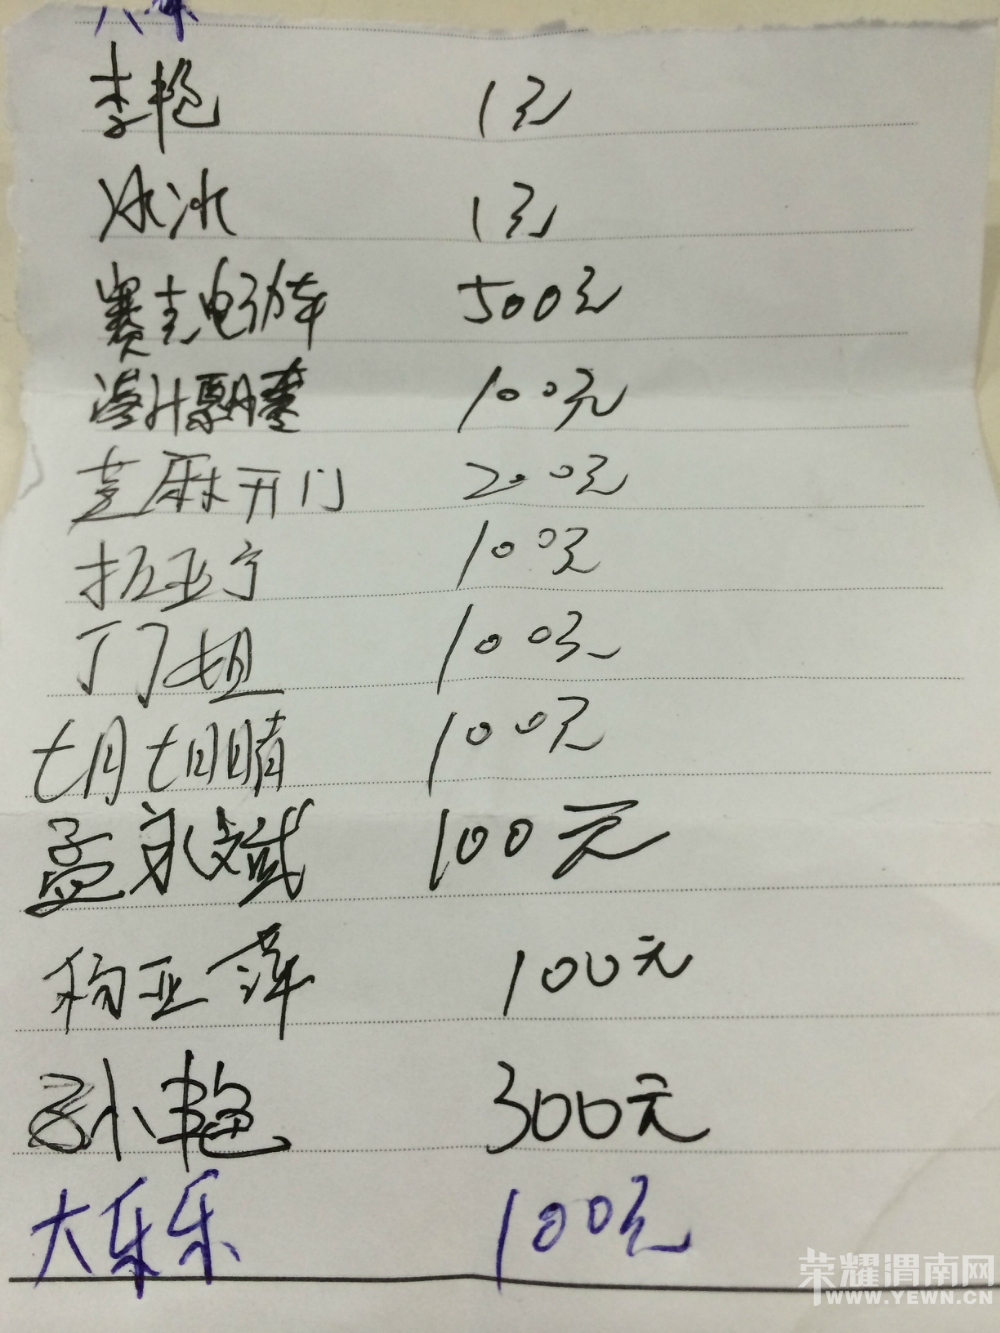 李艳 1元
冰冰 1元
赛克电动车 500元
100元
芝麻开门 200元
亚宁 100元
丁丁姐 100元
七月七日晴 100元
孟永斌 100元
杨亚萍 100元
孙艳 300元
大乐乐 100元
荣耀渭南网
WWW.YEWN.CN